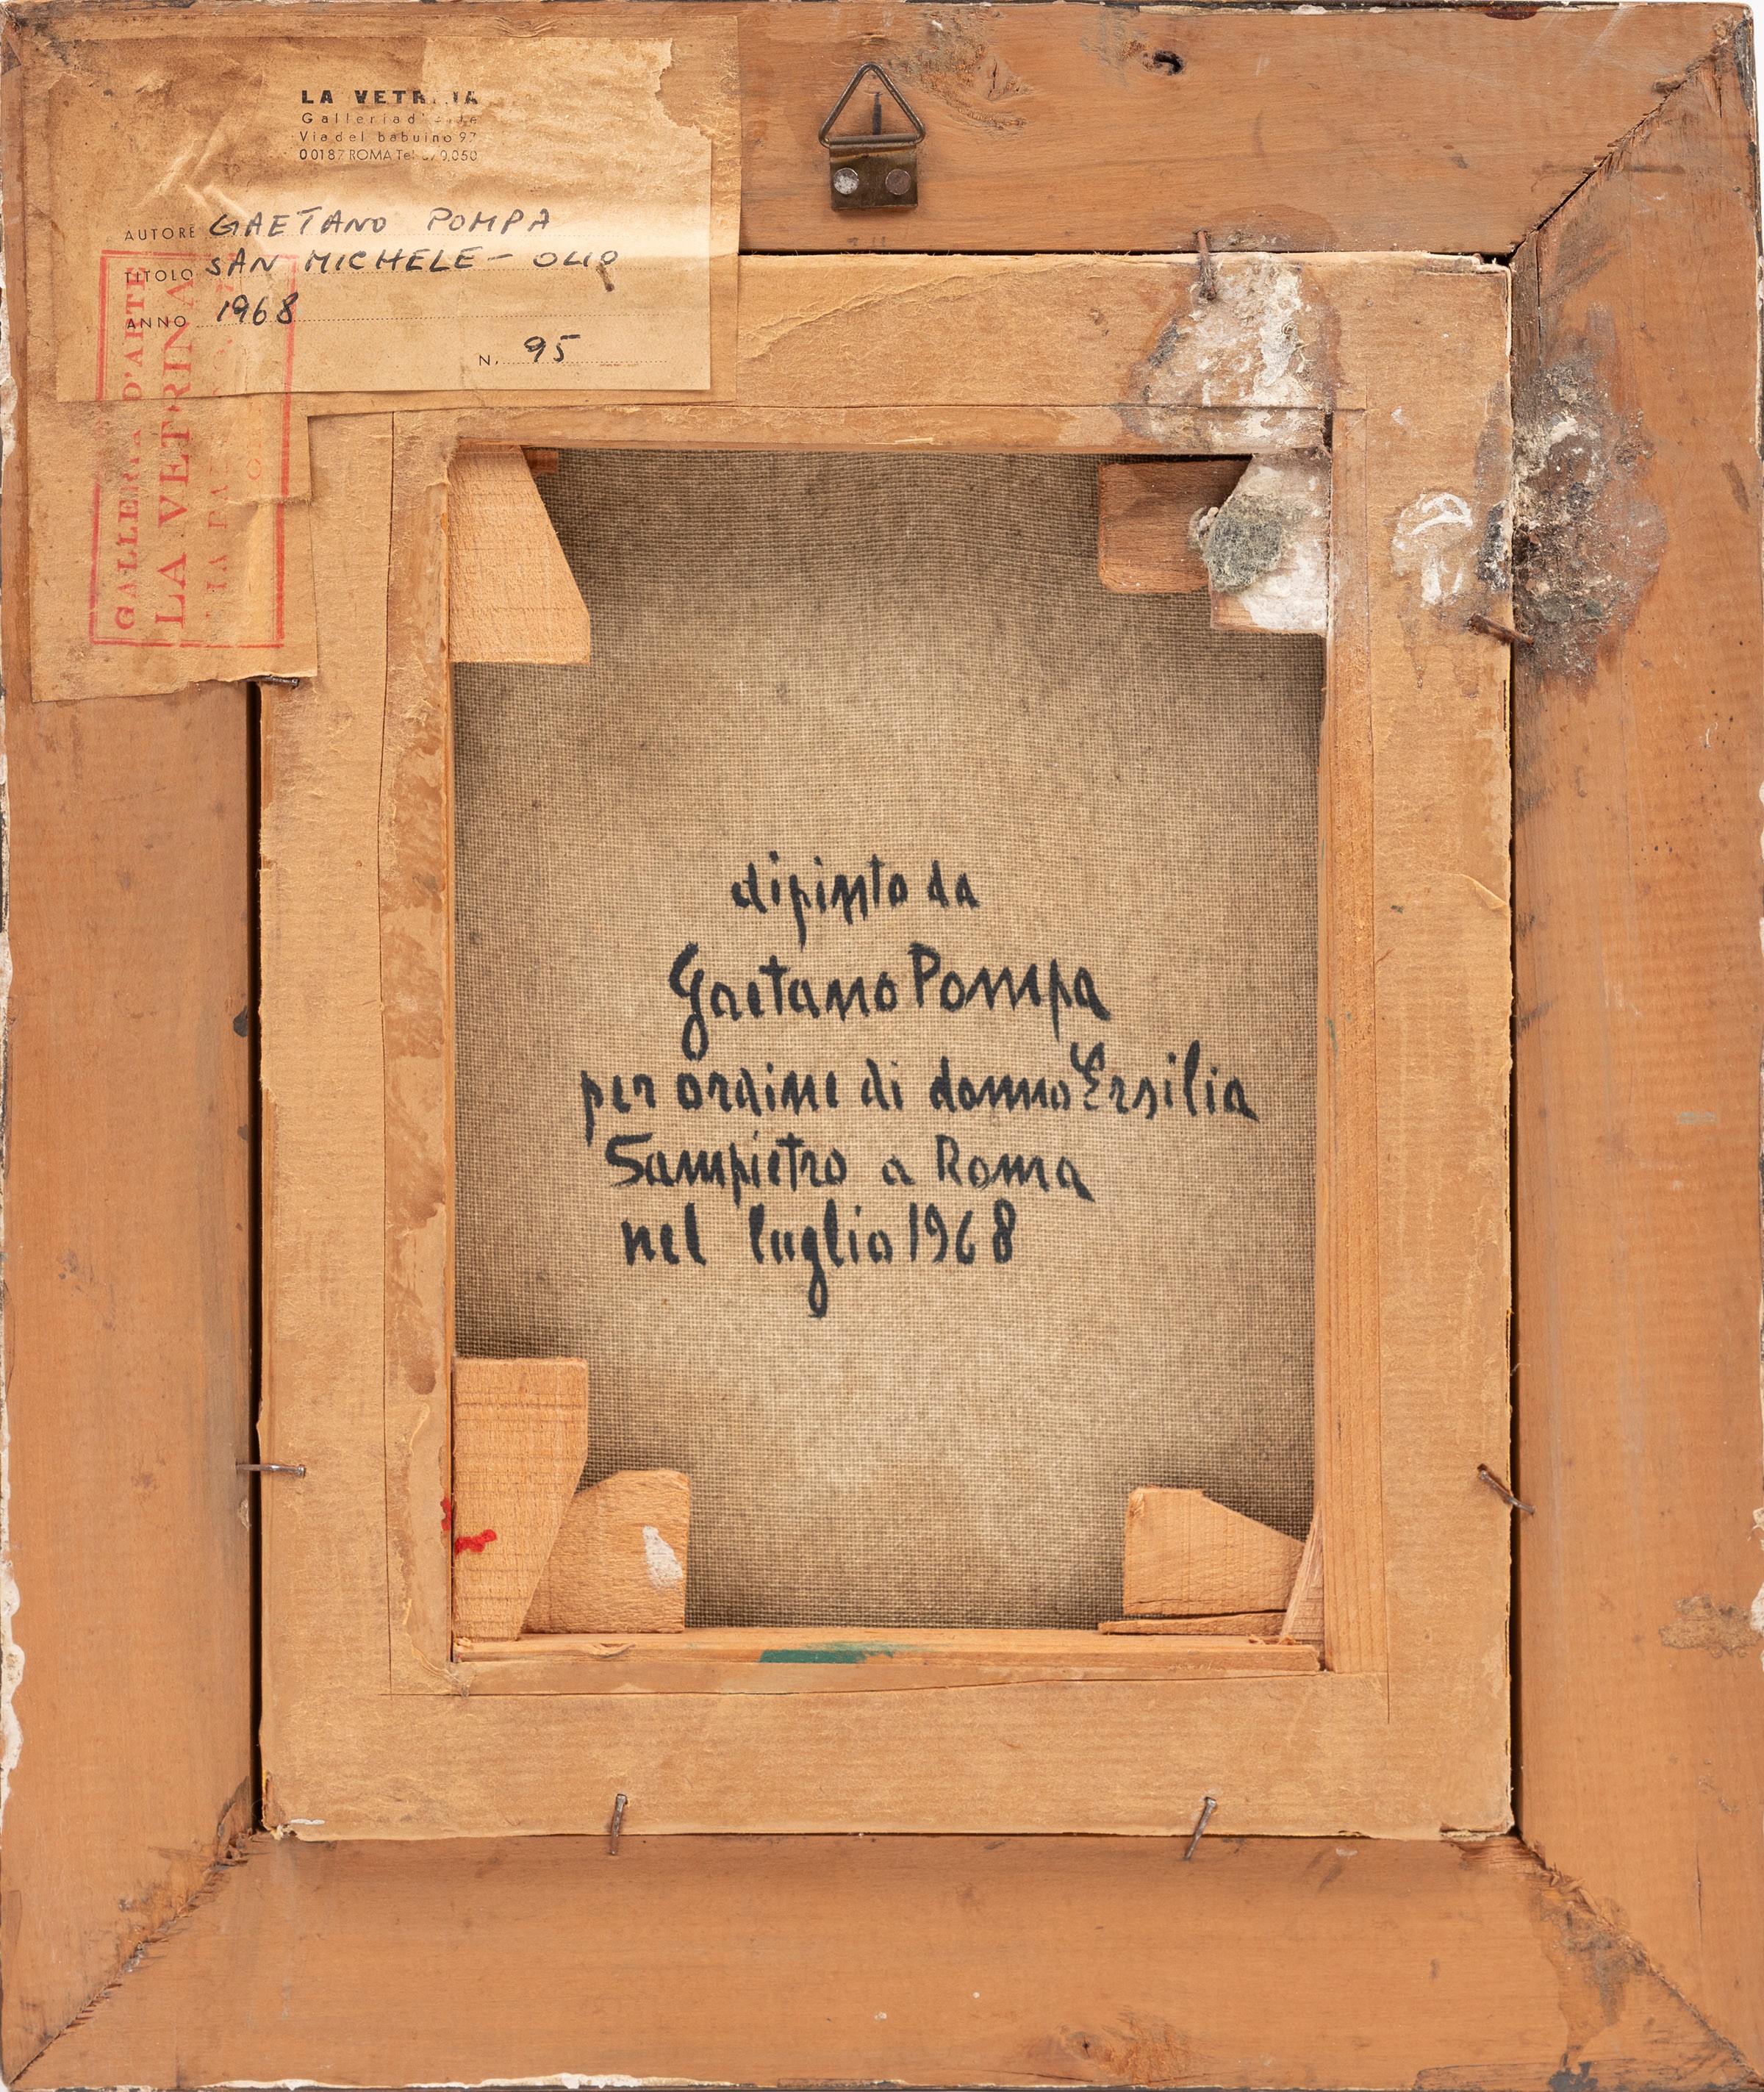 LA
Galleria
Via del babuino 97
00187 ROMA Tel
AUTORE GAETANO POMPA
TITOLO SAN MICHELE - OLIO
ANNO 1968
N. 95
GALLERIA D'ARTE
LA VETRINA
dipinto da
Gaetano Pompa
per ordine di donna Ersilia
Sampietro a Roma
nel luglio 1968